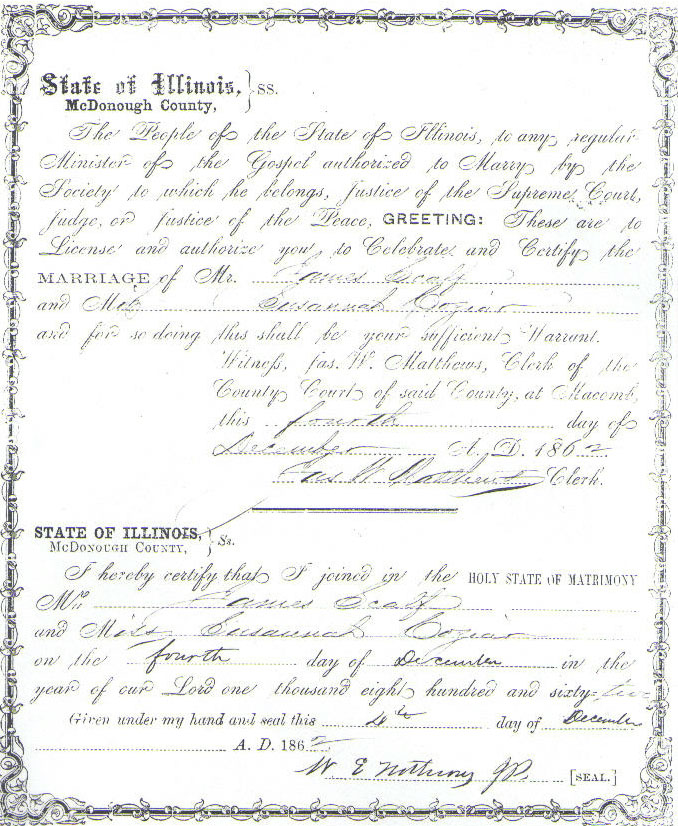 State of Illinois, } SS.
McDonough County,
The People of the State of Illinois, to any regular
Minister of the Gospel authorized to Marry by the
Society to which he belongs, Justice of the Supreme Court,
Judge, or Justice of the Peace, GREETING: These are to
License and authorize you to Celebrate and Certify the
MARRIAGE of Mr. James Scalf
and M Susannah
and for so doing this shall be your sufficient Warrant.
Witness, Jas. W. Matthews, Clerk of the
County Court of said County, at Macomb,
this fourth day of
December A. D. 1862
Jas W Matthews Clerk.
STATE OF ILLINOIS, } Ss.
McDONOUGH COUNTY,
I hereby certify that I joined in the HOLY STATE OF MATRIMONY
Mr. James Scalf
and Miss Susannah
on the fourth day of December in the
year of our Lord one thousand eight hundred and sixty-two
Given under my hand and seal this 4th day of December
A. D. 1862
W E JP. [SEAL.]